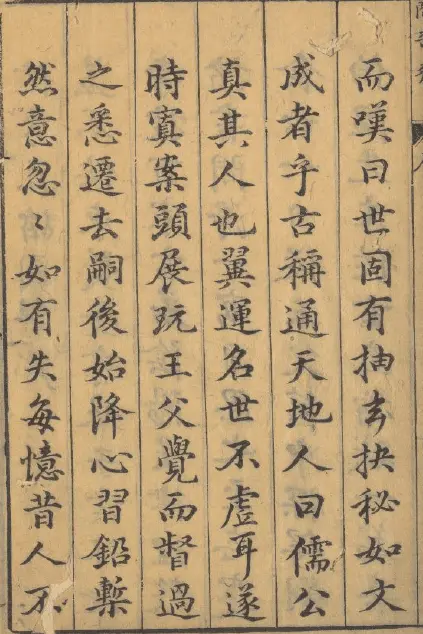 而嘆曰世固有抽玄抉秘如文
成者乎古稱通天地人曰儒公
真其人也翼運名世不虛耳遂
時寘案頭展玩王父覺而督過
之悉遷去嗣後始降心習鉛槧
然意忽〻如有失每憶昔人不